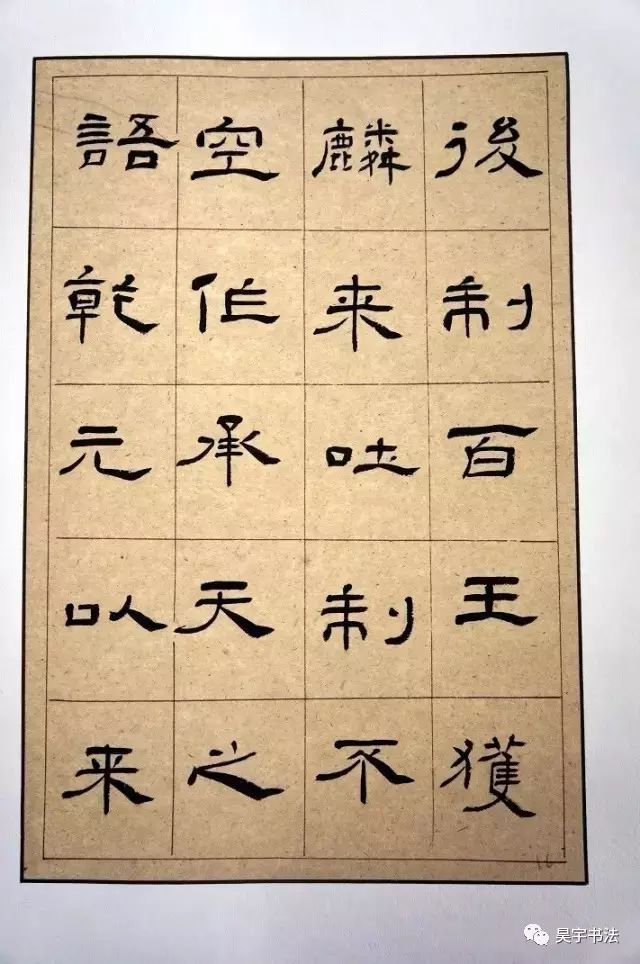 後制百王獲
麟来吐制不
空作承天之
語乾元以来
昊宇书法